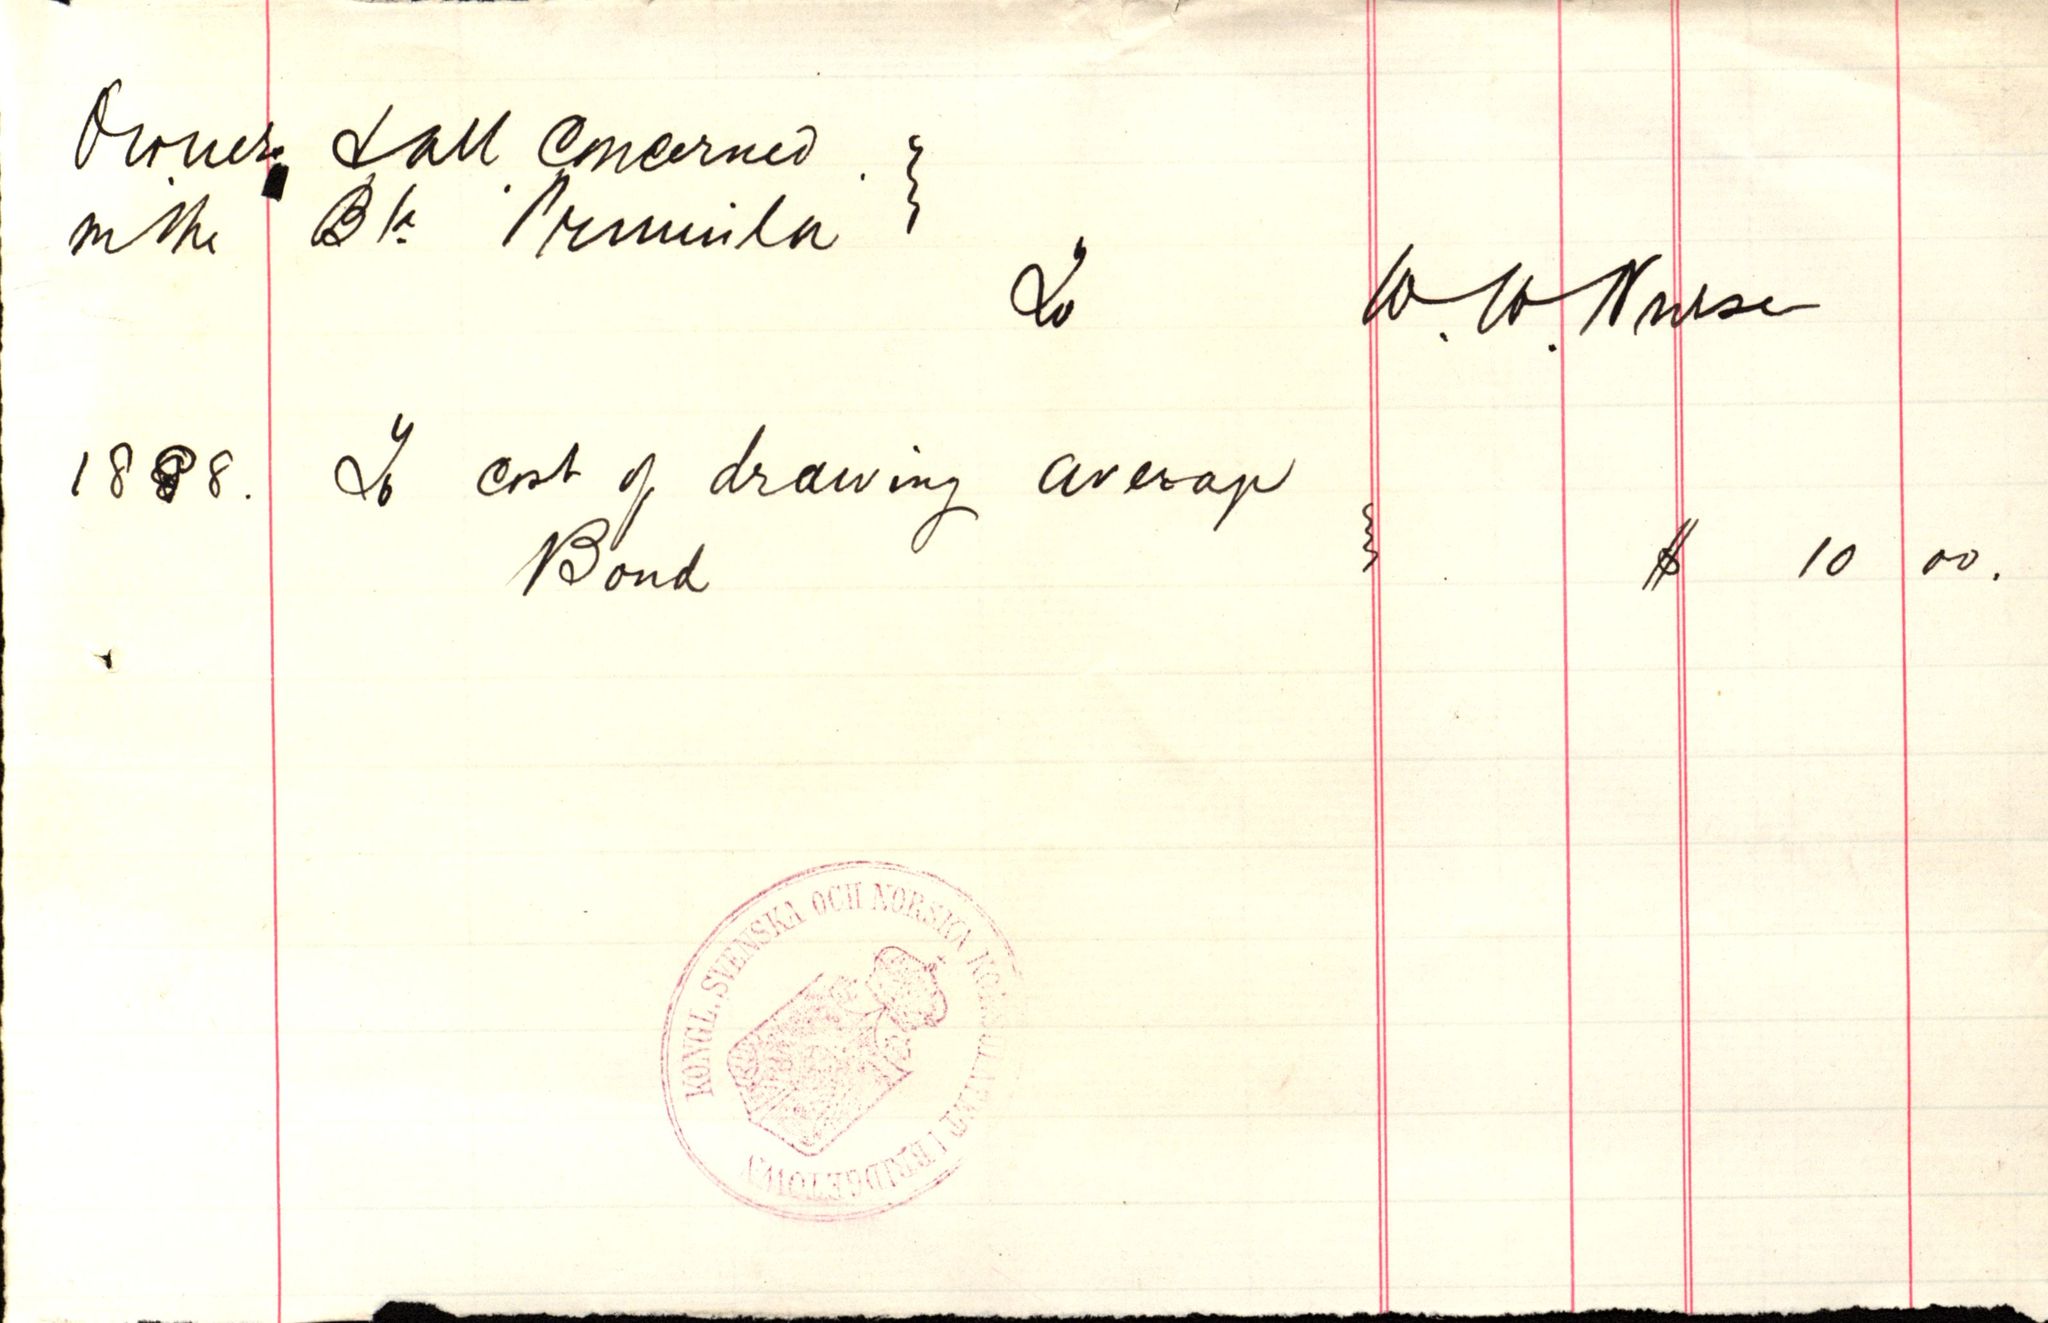 Owners & all concerned
in the Bk. Premuila
To W. W. Nurse
1888. To cost of drawing average
Bond $ 10 00.
KONGL. SVENSKA OCH NORSKA KONSULATAT I BRIDGETOWN